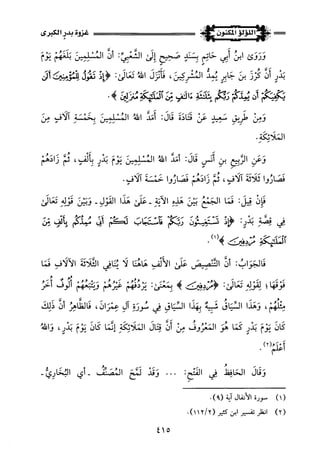 اللؤلؤ المكنون
غزوة بدر الكبرى
وَرَوَى ابنُ أَبِي حَاتِمٍ بِسَنَدٍ صَحِيحٍ إِلَى الشَّعْبِيِّ: أَنَّ المُسْلِمِينَ بَلَغَهُمْ يَوْمَ
بَدْرٍ أَنَّ كُرْزَ بنَ جَابِرٍ يُمِدُّ المُشْرِكِينَ، فَأَنْزَلَ اللهُ تَعَالَى: ﴿إِذْ تَقُولُ لِلْمُؤْمِنِينَ أَلَن
يَكْفِيَكُمْ أَن يُمِدَّكُمْ رَبُّكُم بِثَلَاثَةِ ءَالَافٍ مِّنَ الْمَلَائِكَةِ مُنزَلِينَ﴾.
وَمِنْ طَرِيقِ سَعِيدٍ عَنْ قَتَادَةَ قَالَ: أَمَدَّ اللهُ المُسْلِمِينَ بِخَمْسَةِ آلَافٍ مِنَ
المَلَائِكَةِ.
وَعَنِ الرَّبِيعِ بنِ أَنَسٍ قَالَ: أَمَدَّ اللهُ المُسْلِمِينَ يَوْمَ بَدْرٍ بِأَلْفٍ، ثُمَّ زَادَهُمْ
فَصَارُوا ثَلَاثَةَ آلَافٍ، ثُمَّ زَادَهُمْ فَصَارُوا خَمْسَةَ آلَافٍ.
فَإِنْ قِيلَ: فَمَا الجَمْعُ بَيْنَ هَذِهِ الآيَةِ -عَلَى هَذَا القَوْلِ- وَبَيْنَ قَوْلِهِ تَعَالَى
فِي قِصَّةِ بَدْرٍ: ﴿إِذْ تَسْتَغِيثُونَ رَبَّكُمْ فَاسْتَجَابَ لَكُمْ أَنِّي مُمِدُّكُم بِأَلْفٍ مِّنَ
الْمَلَائِكَةِ مُرْدِفِينَ﴾(١).
فَالجَوَابُ: أَنَّ التَّنْصِيصَ عَلَى الأَلْفِ هَاهُنَا لَا يُنَافِي الثَّلَاثَةَ الآلَافِ فَمَا
فَوْقَهَا؛ لِقَوْلِهِ تَعَالَى: ﴿مُرْدِفِينَ﴾ بِمَعْنَى: يَرْدُفُهُمْ غَيْرُهُمْ وَيَتْبَعُهُمْ أُلُوفٌ أُخَرُ
مِثْلُهُمْ، وَهَذَا السِّيَاقُ شَبِيهٌ بِهَذَا السِّيَاقِ فِي سُورَةِ آلِ عِمْرَانَ، فَالظَّاهِرُ أَنَّ ذَلِكَ
كَانَ يَوْمَ بَدْرٍ كَمَا هُوَ المَعْرُوفُ مِنْ أَنَّ قِتَالَ المَلَائِكَةِ إِنَّمَا كَانَ يَوْمَ بَدْرٍ، وَاللهُ
أَعْلَمُ(٢).
وَقَالَ الحَافِظُ فِي الفَتْحِ: ... وَقَدْ لَمَّحَ المُصَنِّفُ -أي البُخَارِيُّ-
(١) سورة الأنفال آية (٩).
(٢) انظر تفسير ابن كثير (١١٢/٢).
٤١٥